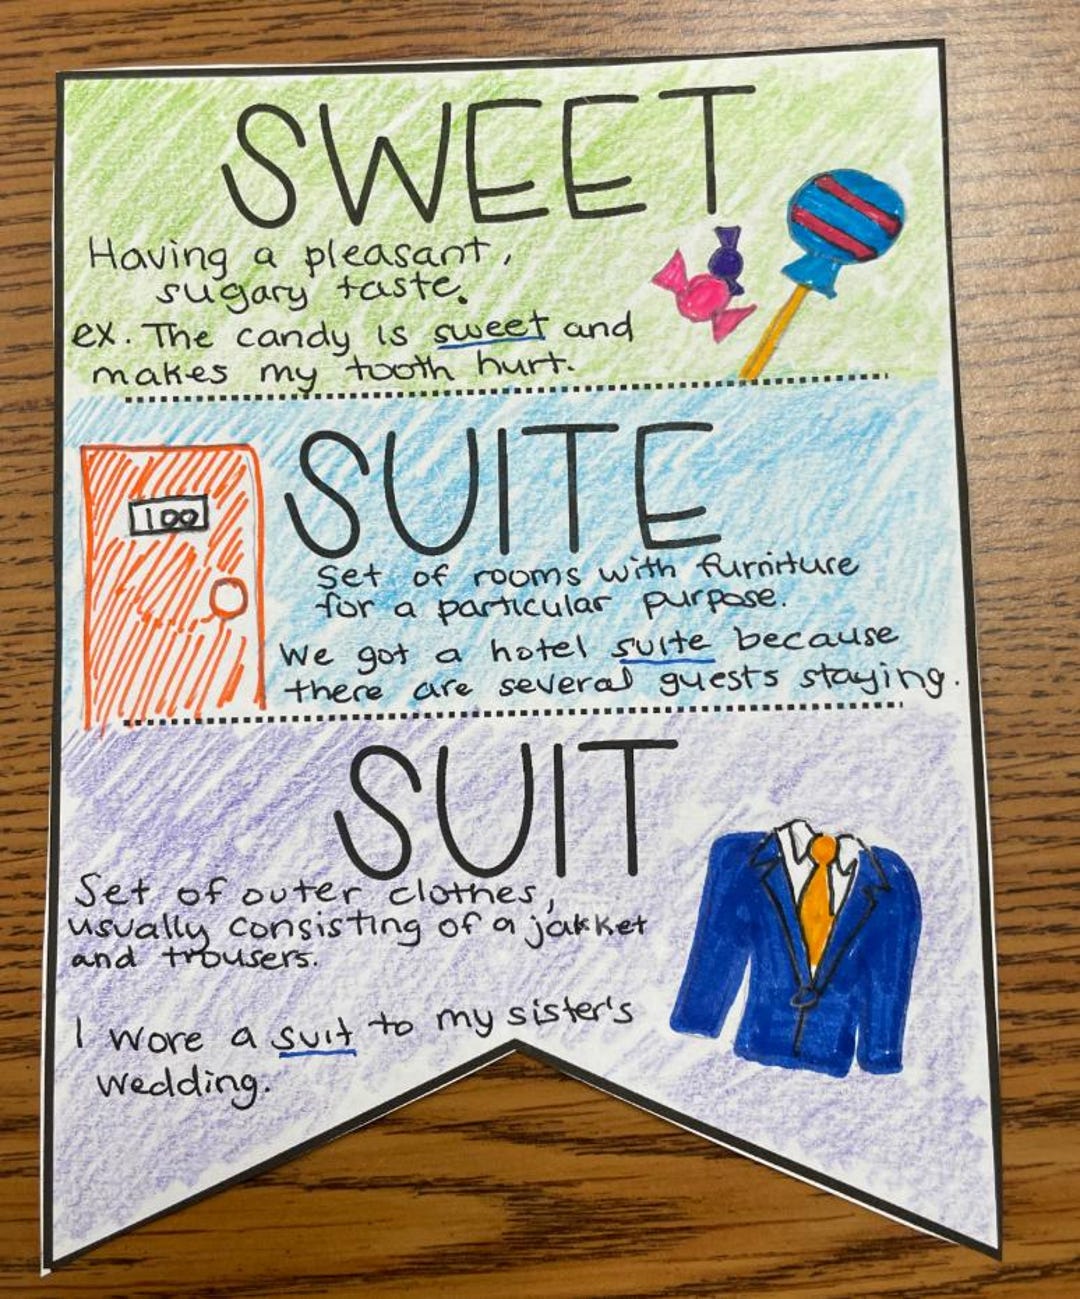 SWEET
Having a pleasant,
sugary taste.
ex. The candy is sweet and
makes my tooth hurt.
SUITE
100
Set of rooms with furniture
for a particular purpose.
We got a hotel suite because
there are several guests staying.
SUIT
Set of outer clothes,
usually consisting of a jakket
and trousers.
I wore a suit to my sister's
wedding.